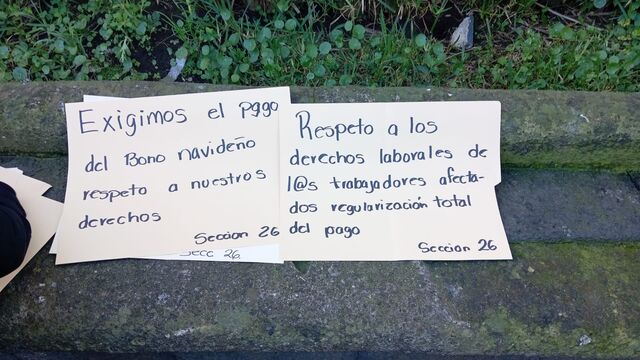 Exigimos el pago
del Bono navideño
respeto a nuestros
derechos
Seccion 26
Secc 26.
Respeto a los
derechos laborales de
l@s trabajadores afecta-
dos regularización total
del pago
Seccion 26